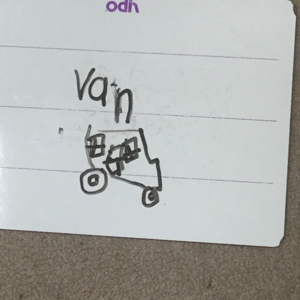 odh
van